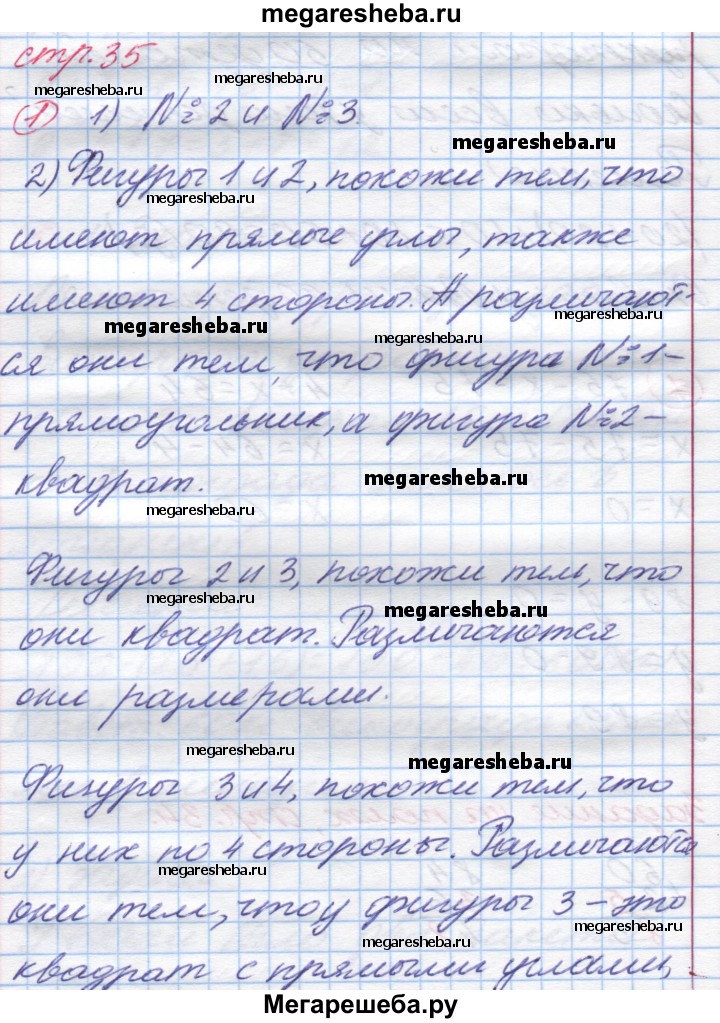 megaresheba.ru
стр. 35
megaresheba.ru
megaresheba.ru
1 1) № 2 и № 3.
megaresheba.ru
2) Фигуры 1 и 2, похожи тем, что
megaresheba.ru
имеют прямые углы, также
имеют 4 стороны. А различают-
megaresheba.ru
megaresheba.ru
megaresheba.ru
ся они тем, что фигура № 1 –
прямоугольник, а фигура № 2 –
квадрат.
megaresheba.ru
megaresheba.ru
Фигуры 2 и 3, похожи тем, что
megaresheba.ru
megaresheba.ru
они квадрат. Различаются
они размерами.
megaresheba.ru
megaresheba.ru
Фигуры 3 и 4, похожи тем, что
у них по 4 стороны. Различаются
megaresheba.ru
они тем, что у фигуры 3 – это
megaresheba.ru
megaresheba.ru
квадрат с прямыми углами,
Мегарешеба.ру